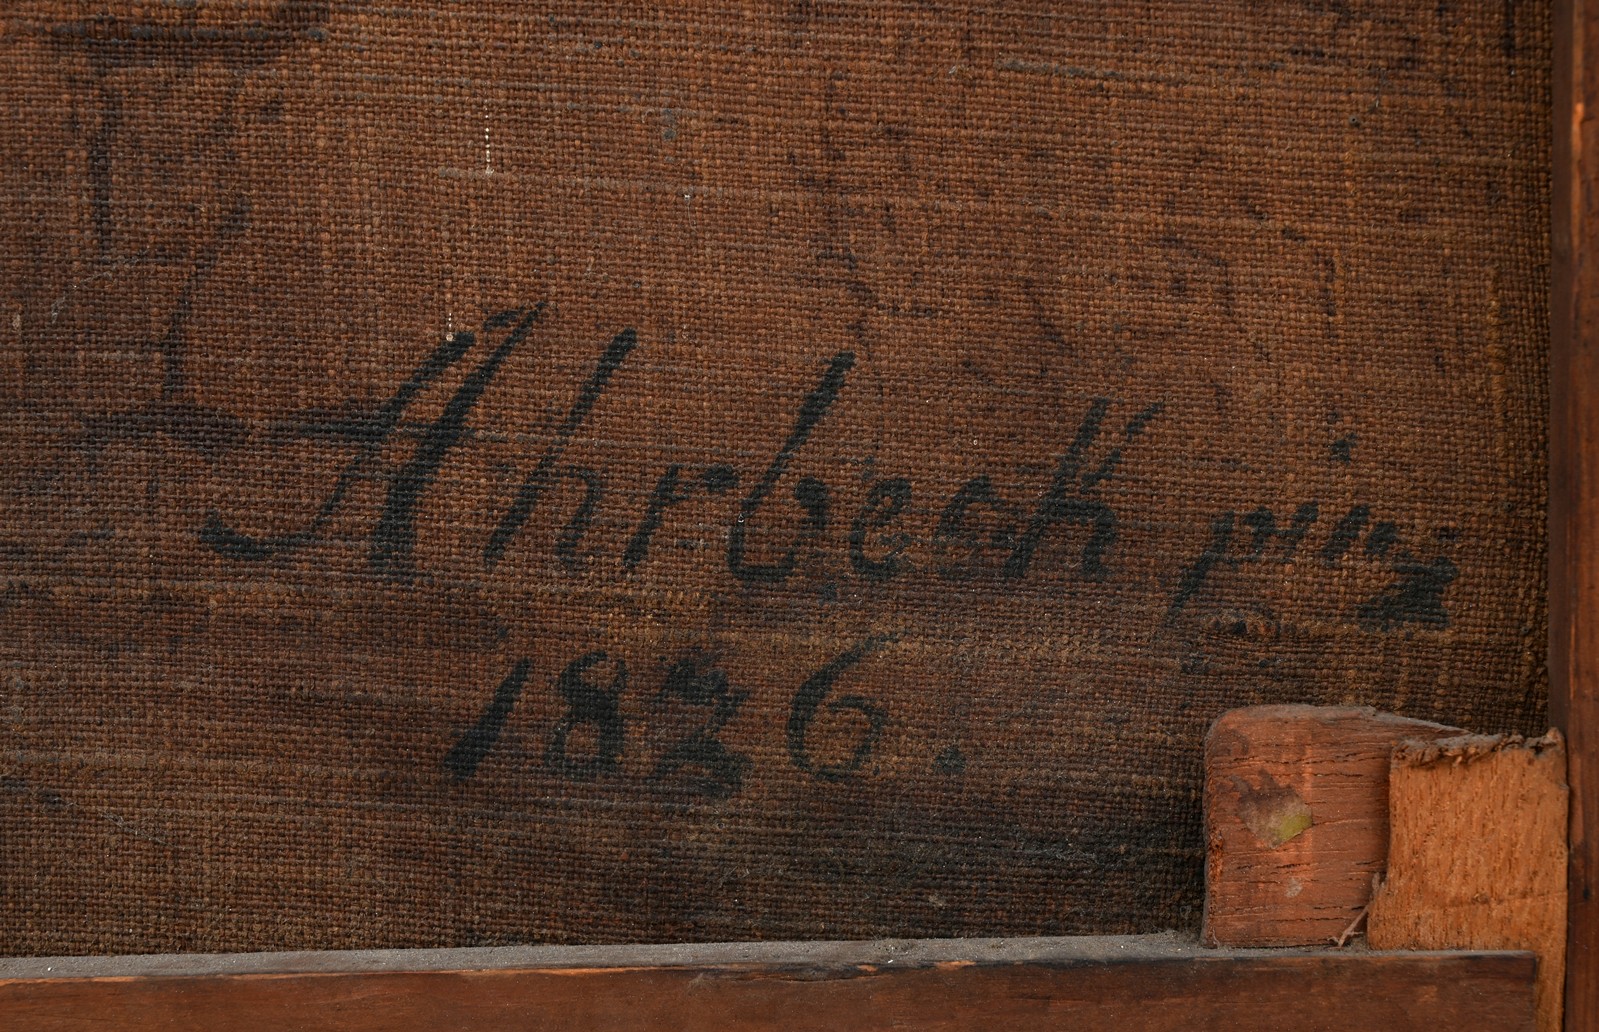 Ahrbeck pinx
1826.